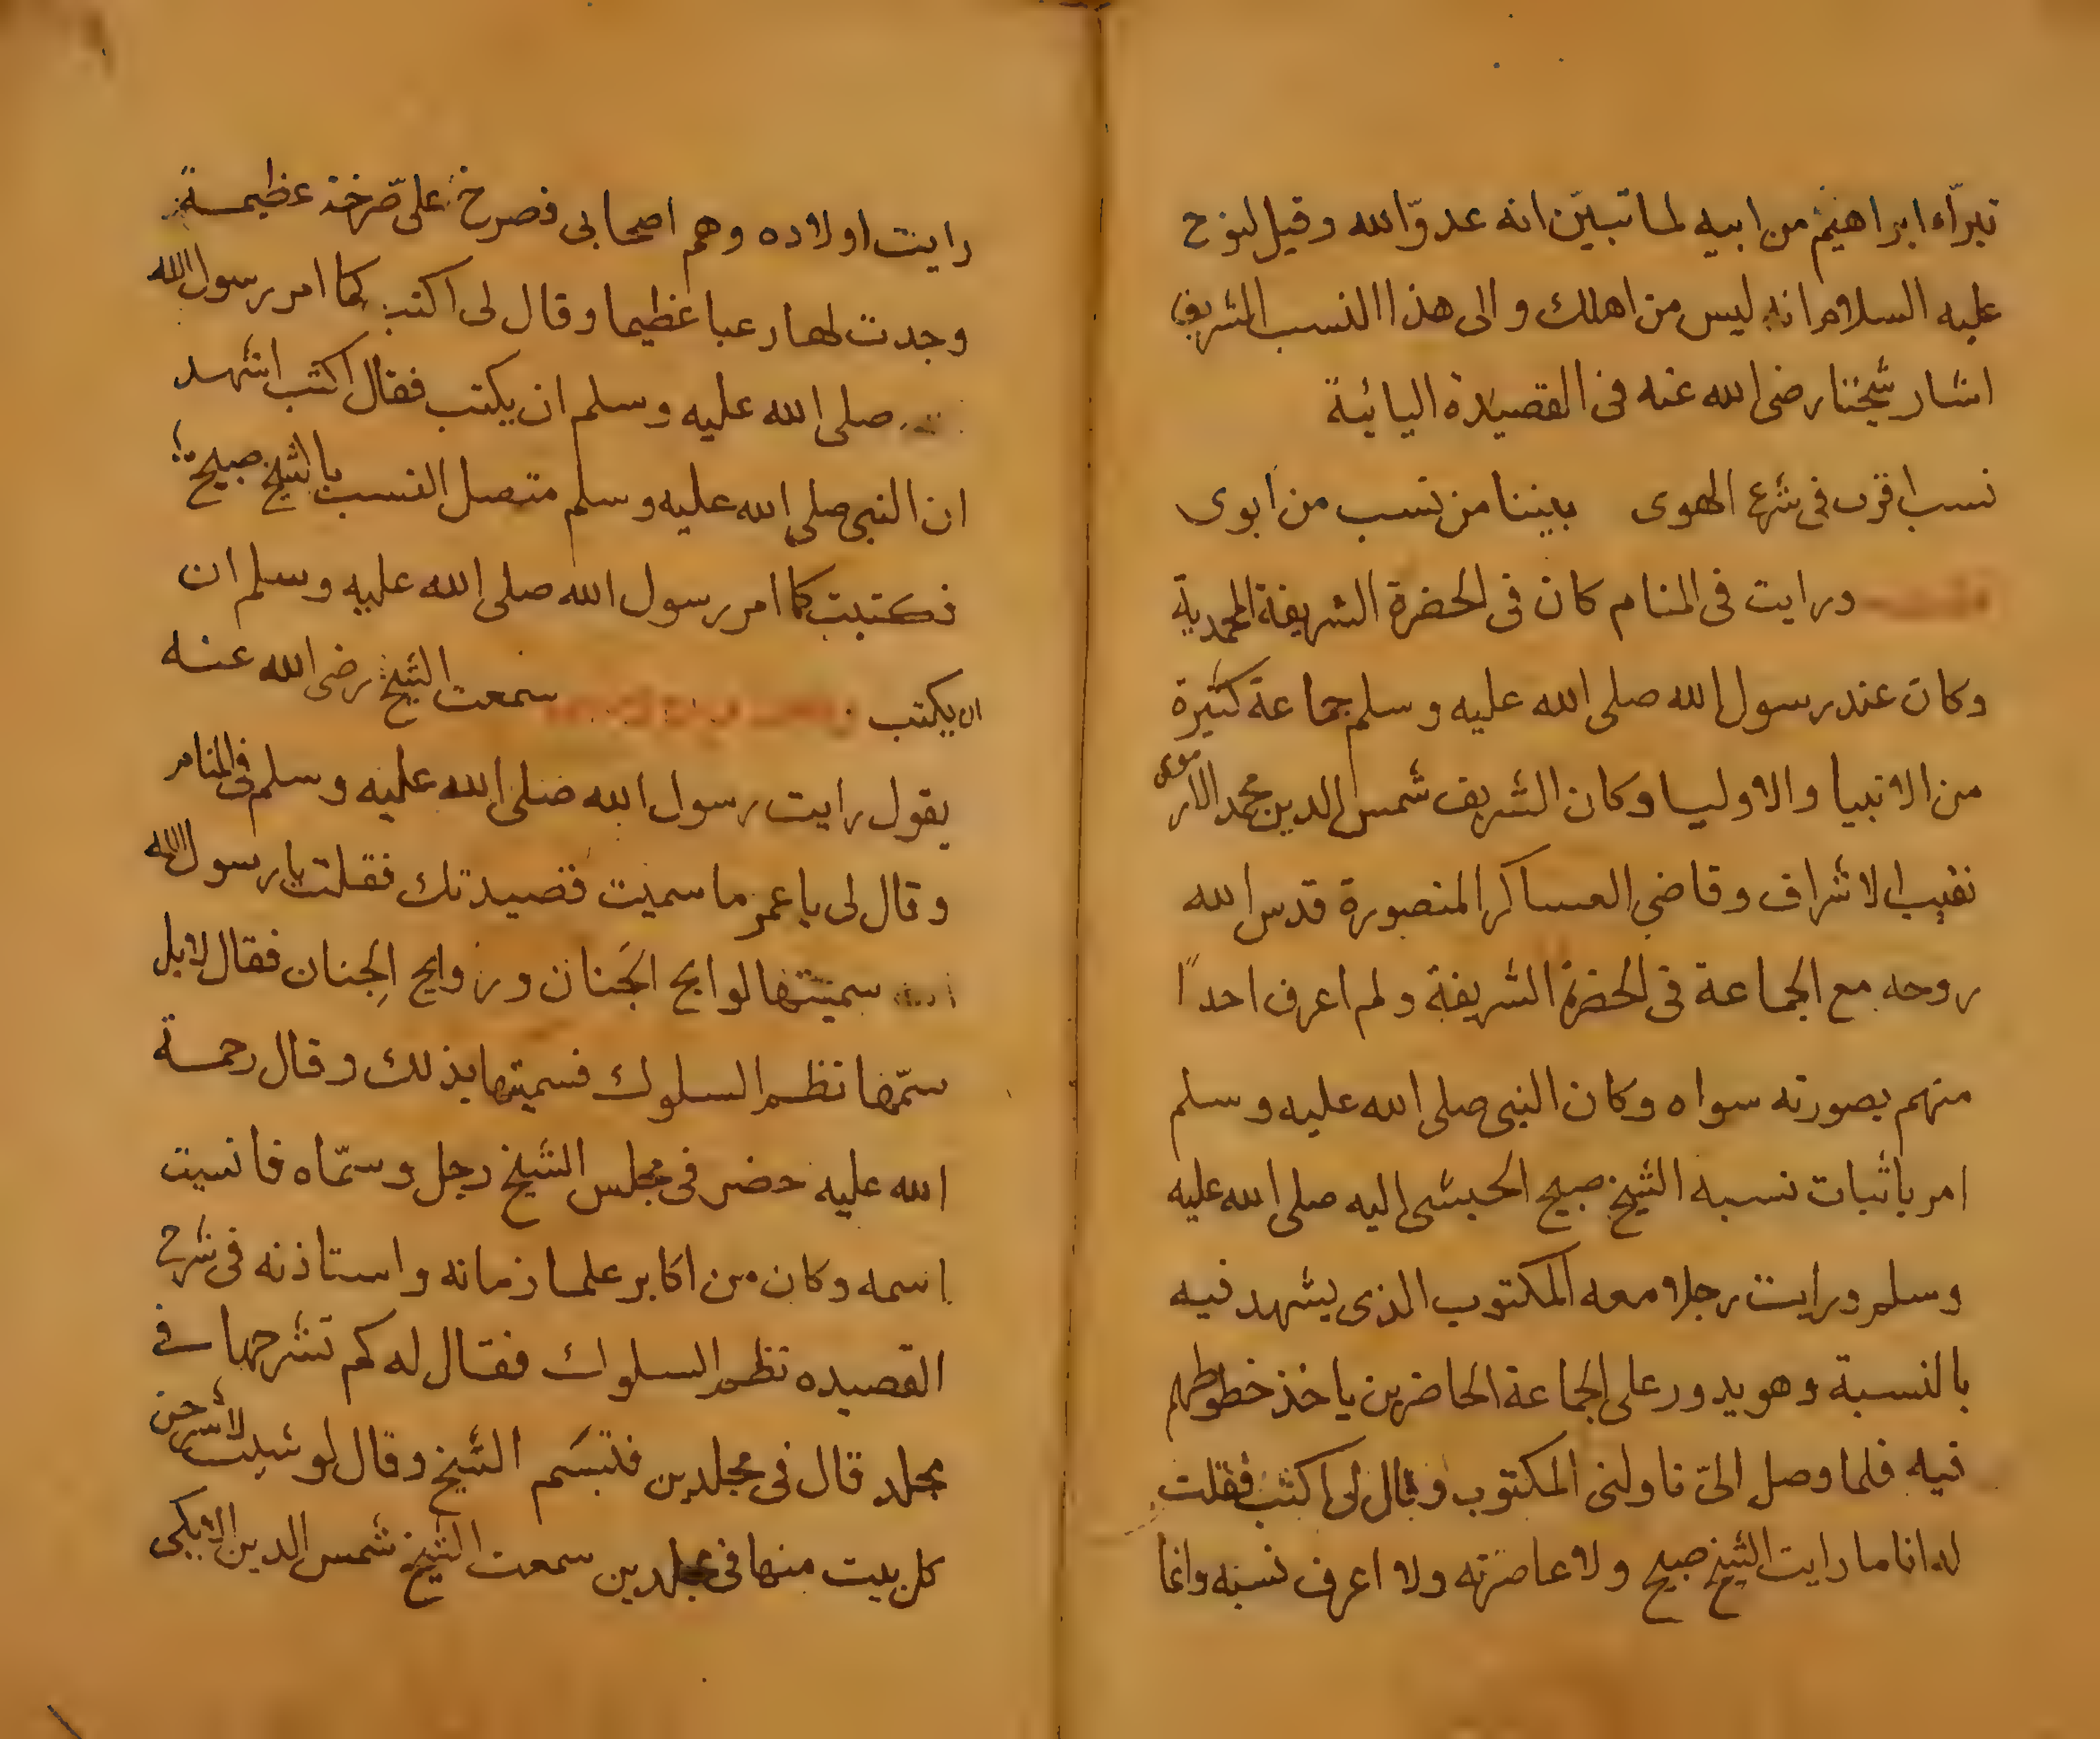 تبرّاء ابراهيم من ابيه لما تبيّن انه عدوّ الله وقيل لنوح
عليه السلام انه ليس من اهلك والى هذا النسب الشريف
اشار شيخنا رضى الله عنه فى القصيدة اليائية
نسب اقرب فى شرع الهوى بيننا من نسب من ابوى
ورايت فى المنام كان فى الحضرة الشريفة المحمدية
وكان عند رسول الله صلى الله عليه وسلم جماعة كثيرة
من الانبيا والاوليا وكان الشريف شمس الدين محمد الارموى
نقيب الاشراف وقاضى العساكر المنصورة قدس الله
روحه مع الجماعة فى الحضرة الشريفة ولم اعرف احدًا
منهم بصورته سواه وكان النبى صلى الله عليه وسلم
امر باثبات نسبه الشيخ صبيح الحبشى اليه صلى الله عليه
وسلم ورايت رجلا معه المكتوب الذى يشهد فيه
بالنسبة وهو يدور على الجماعة الحاضرين ياخذ خطوطهم
فيه فلما وصل الىّ ناولنى المكتوب وقال لى اكتب فقلت
له انا ما رايت الشيخ صبيح ولا عاصرته ولا اعرف نسبه وانما
رايت اولاده وهم اصحابى فصرخ علىّ صرخة عظيمة
وجدت لها رعبا عظيما وقال لى اكتب كما امر رسول الله
صلى الله عليه وسلم ان يكتب فقال اكتب اشهد
ان النبى صلى الله عليه وسلم متصل النسب بالشيخ صبيح
فكتبت كما امر رسول الله صلى الله عليه وسلم ان
ان يكتب سمعت الشيخ رضى الله عنه
يقول رايت رسول الله صلى الله عليه وسلم فى المنام
وقال لى يا عمر ما سميت قصيدتك فقلت يا رسول الله
سميتها لوايح الجَنان وروايح الجِنان فقال لا بل
سمّها نظم السلوك فسميتها بذلك وقال رحمة
الله عليه حضر فى مجلس الشيخ رجل وسمّاه فانسيت
اسمه وكان من اكابر علما زمانه واستاذنه فى شرح
القصيده نظم السلوك فقال له كم تشرحها فى
مجلد قال فى مجلدين فتبسّم الشيخ وقال لو شيت لاشرحن
كل بيت منها فى مجلدين سمعت الشيخ شمس الدين الايكى